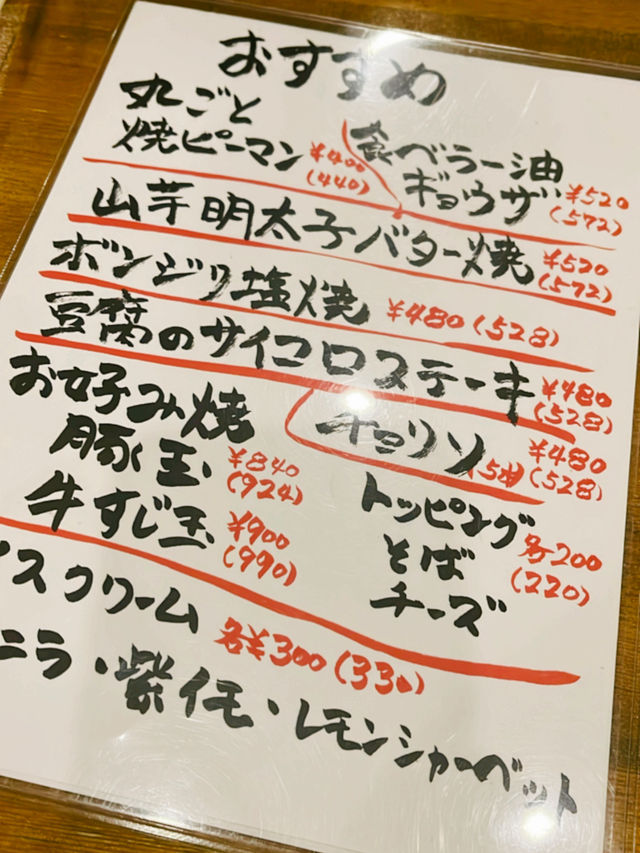 おすすめ
丸ごと
焼ピーマン ¥400
(440)
食べラー油
ギョウザ ¥520
(572)
山芋明太子バター焼 ¥520
(572)
ボンジリ塩焼 ¥480(528)
豆腐のサイコロステーキ ¥480
(528)
お好み焼
豚玉 ¥840
(924)
牛すじ玉 ¥900
(990)
チョリソ(5本) ¥480
(528)
トッピング
そば 各200
(220)
チーズ
イスクリーム 各¥300(330)
ニラ・紫イモ・レモンシャーベット